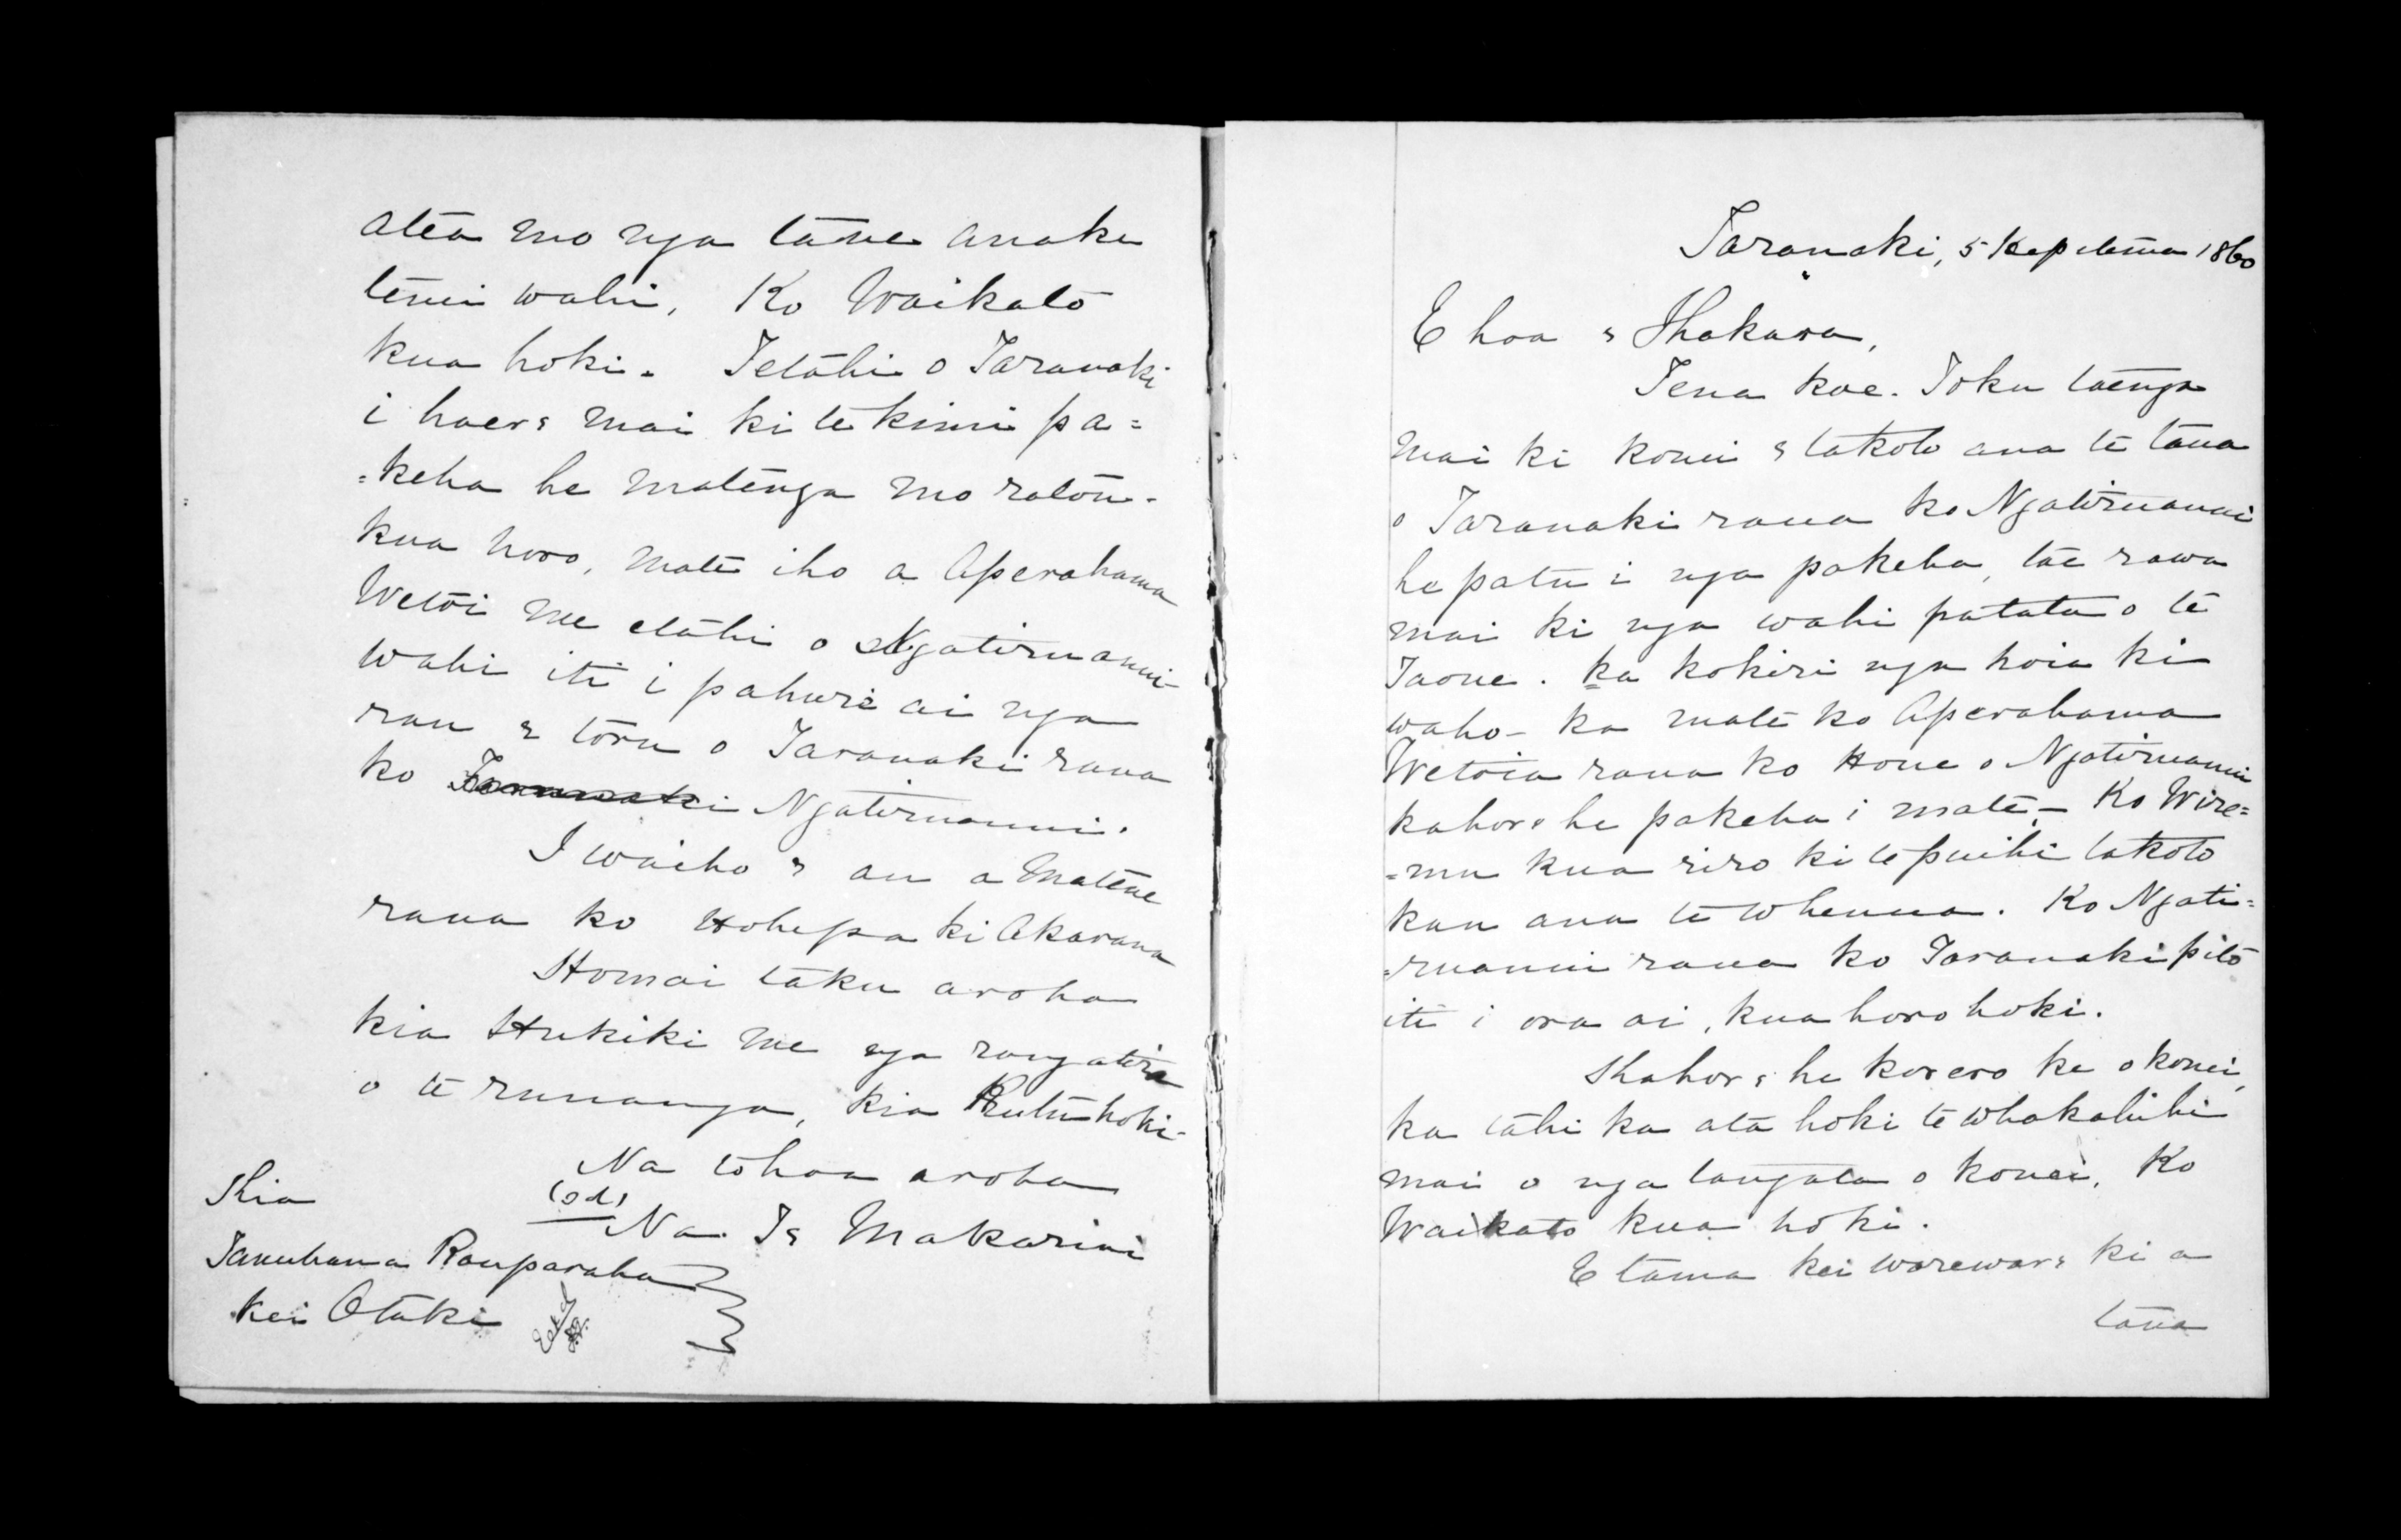 atea mo nga tane anake
tenei wahi. Ko Waikato
kua hoki. Tetahi o Taranaki
i haere mai ki te kimi pa=
=keha he matenga mo ratou.
kua horo, mate iho a Aperahama
Wetoi me etahi o Ngatiruanui
wahi iti i pahure ai nga
rau e toru o Taranaki raua
ko Taranaki Ngatiruanui.
I waiho e au a Matene
raua ko Hohepa ki Akarana
Homai taku aroha
kia Hukiki me nga rangatira
o te runanga, kia Rutu hoki.
Na to hoa aroha
(sd) Na Te Makarini
Kia
Tamihana Rauparaha
kei Otaki
Taranaki, 5 Kepitema 1860
E hoa e Ihakara,
Tena koe. Toku taenga
mai ki konei e takoto ana te taua
o Taranaki raua ko Ngatiruanui
he patu i nga pakeha, tae rawa
mai ki nga wahi patata o te
Taone. ka kokiri nga hoia ki
waho - ka mate ko Aperahama
Wetoia raua ko Hone o Ngatiruanui
kahore he pakeha i mate - Ko Wire=
=mu kua riro ki te puihi takoto
kau ana te whenua. Ko Ngati=
=ruanui raua ko Taranaki pito
iti i ora ai, kua horo hoki.
Kahore he korero ke o konei,
ka tahi ka ata hoki te whakahihi
mai o nga tangata o konei. Ko
Waikato kua hoki.
E tama kei wareware ki a
taua